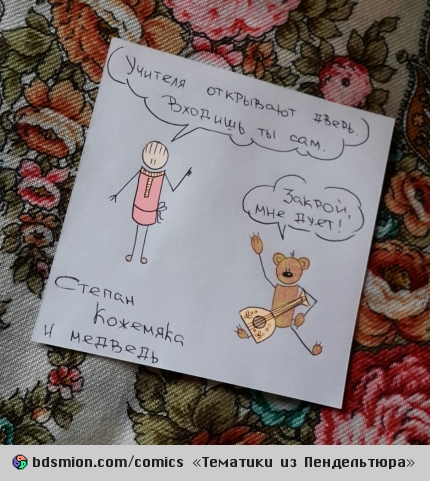 Учителя открывают дверь.
Входишь ты сам.
Закрой,
мне дует!
Степан
Кожемяка
и медведь
bdsmion.com/comics «Тематики из Пендельтюра»